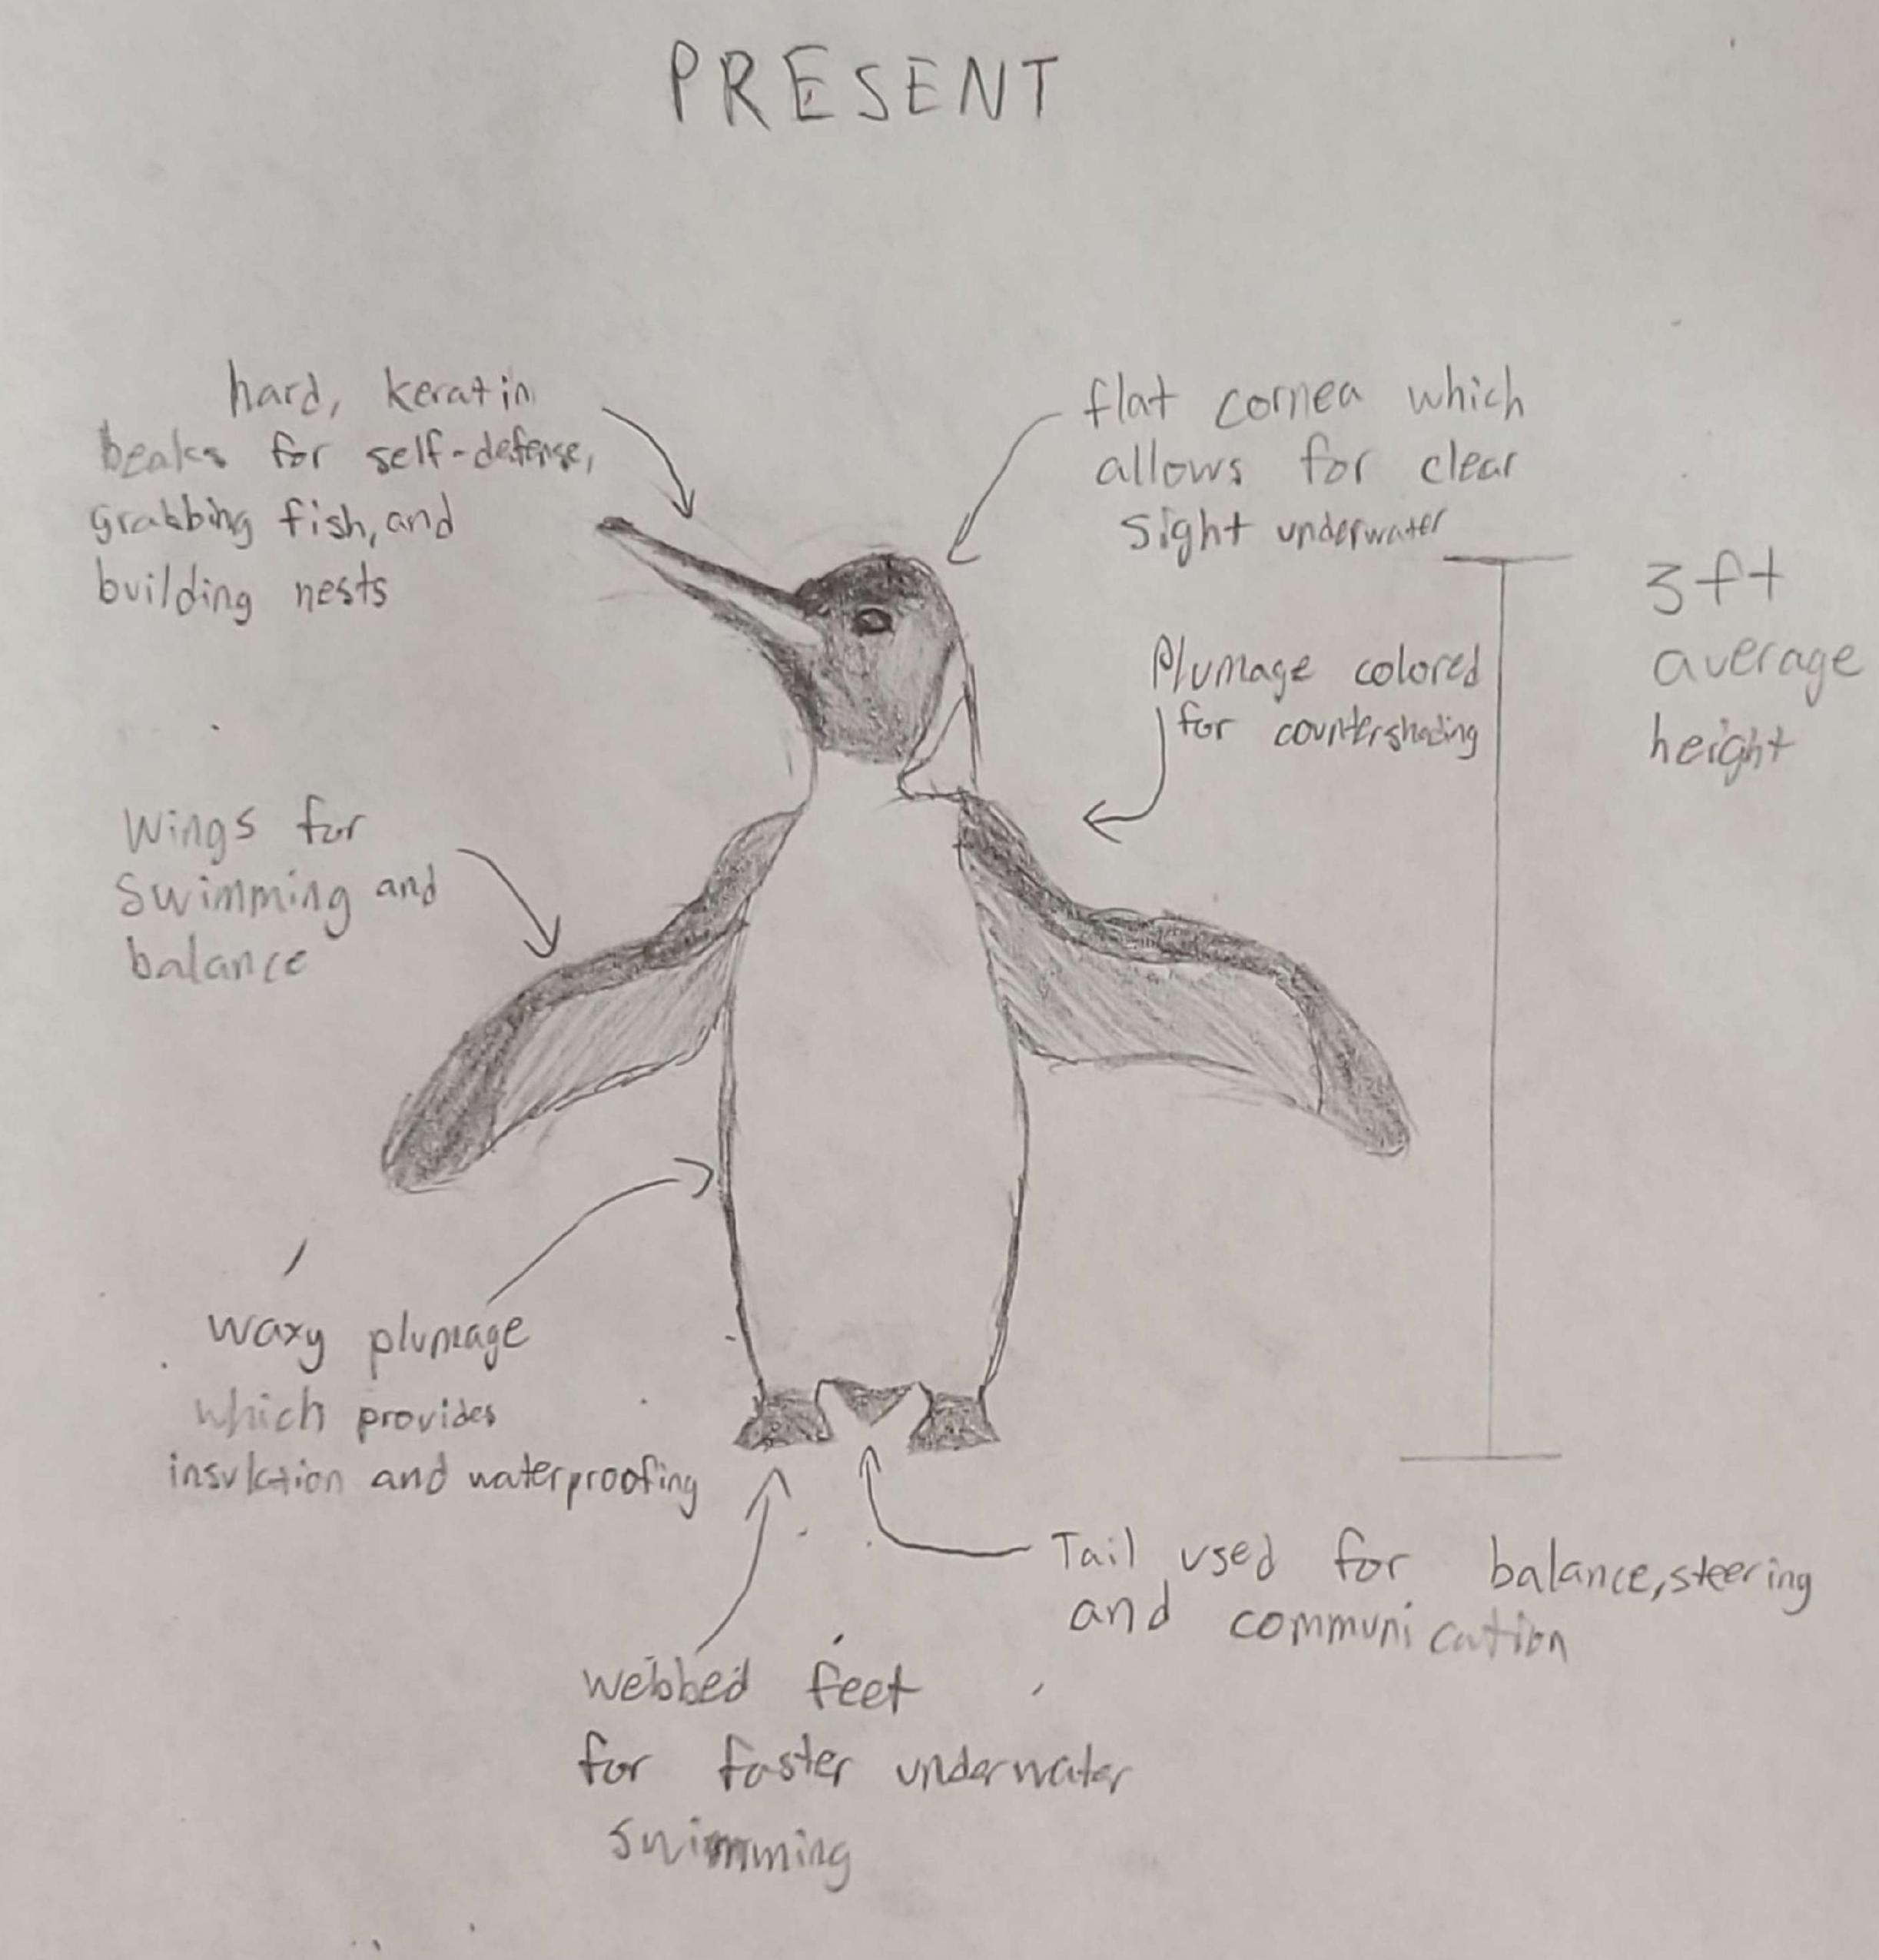 PRESENT
hard, keratin
beaks for self-defense,
grabbing fish, and
building nests
flat cornea which
allows for clear
sight underwater
3ft
average
height
Plumage colored
for countershading
wings for
swimming and
balance
waxy plumage
which provides
insulation and waterproofing
Tail used for balance, steering
and communication
webbed feet
for faster underwater
swimming